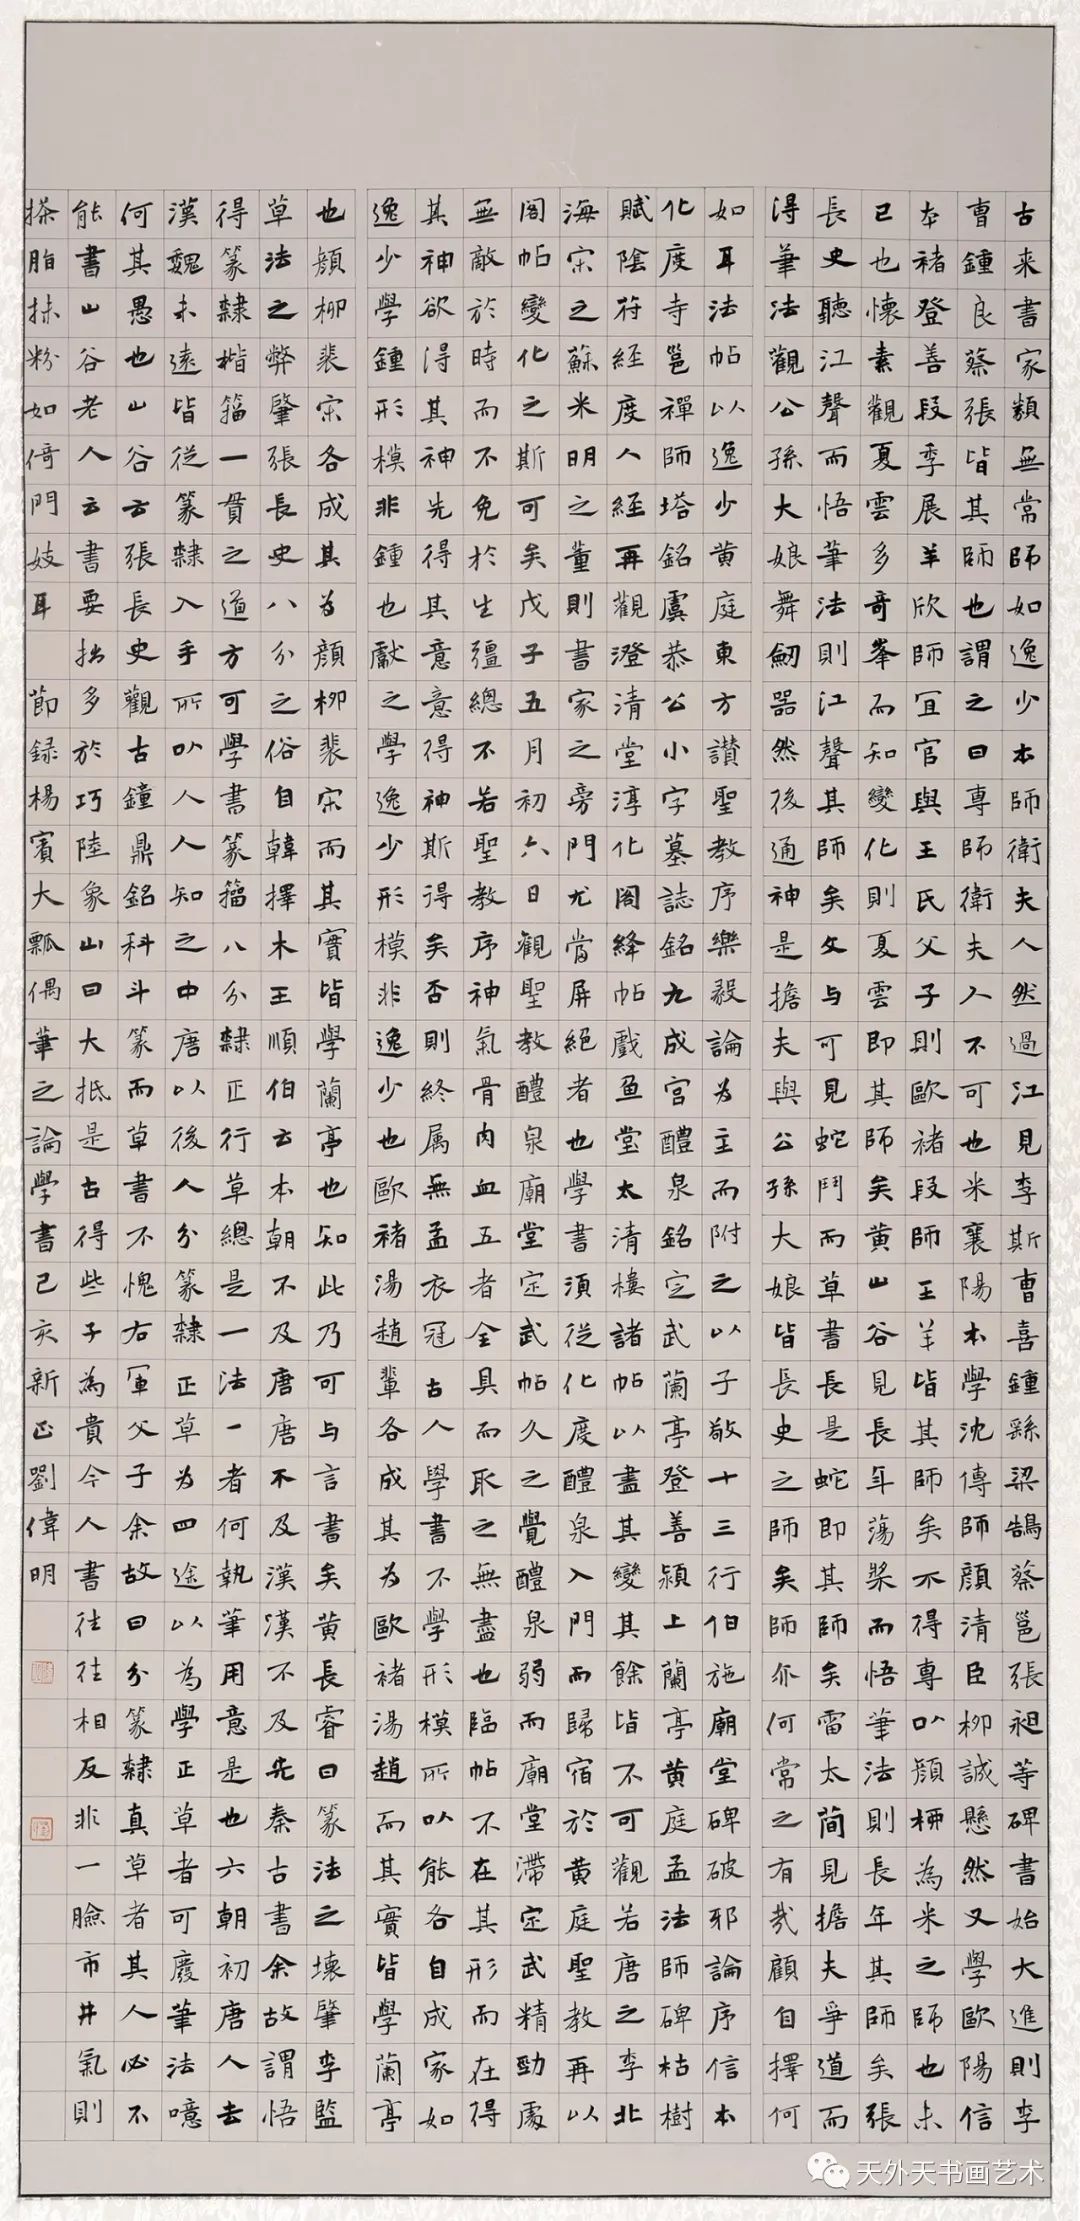 古来書家類無常師如逸少本師衛夫人然過江見李斯曹喜鍾繇梁鵠蔡邕張昶等碑書始大進則李
曹鍾良蔡張皆其師也謂之曰專師衛夫人不可也米襄陽本學沈傳師顔清臣柳誠懸然又學歐陽信
本褚登善段季展羊欣師宜官與王氏父子則歐褚段師王羊皆其師矣不得專以顔柳為米之師也未
已也懷素觀夏雲多奇峯而知變化則夏雲即其師矣黄山谷見長年蕩槳而悟筆法則長年其師矣張
長史聽江聲而悟筆法則江聲其師矣文与可見蛇鬥而草書長是蛇即其師矣雷太簡見擔夫爭道而
得筆法觀公孫大娘舞劒器然後通神是擔夫與公孫大娘皆長史之師矣師亦何常之有㢤顧自擇何
如耳法帖以逸少黄庭東方讃聖教序樂毅論為主而附之以子敬十三行伯施廟堂碑破邪論序信本
化度寺邕禪師塔銘虞恭公小字墓誌銘九成宮醴泉銘定武蘭亭登善潁上蘭亭黄庭孟法師碑枯樹
賦陰符經度人經再觀澄清堂淳化閣絳帖戲鱼堂太清樓諸帖以盡其變其餘皆不可觀若唐之李北
海宋之蘇米明之董則書家之旁門尤當屏絕者也學書須從化度醴泉入門而歸宿於黄庭聖教再以
閣帖變化之斯可矣戊子五月初六日觀聖教醴泉廟堂定武帖久之覺醴泉弱而廟堂滯定武精勁處
無敵於時而不免於生彊總不若聖教序神氣骨肉血五者全具而取之無盡也臨帖不在其形而在得
其神欲得其神先得其意意得神斯得矣否則終属無孟衣冠古人學書不學形模所以能各自成家如
逸少學鍾形模非鍾也獻之學逸少形模非逸少也歐褚湯趙輩各成其為歐褚湯趙而其實皆學蘭亭
也顔柳裴宋各成其为顔柳裴宋而其實皆學蘭亭也知此乃可与言書矣黄長睿曰篆法之壊肇李監
草法之弊肇張長史八分之俗自韓擇木王順伯云本朝不及唐唐不及漢漢不及先秦古書余故謂悟
得篆隸楷籀一貫之道方可學書篆籀八分隸正行草總是一法一者何執筆用意是也六朝初唐人去
漢魏未遠皆従篆隸入手所以人人知之中唐以後人分篆隸正草為四途以為學正草者可廢筆法噫
何其愚也山谷云張長史觀古鐘鼎銘科斗篆而草書不愧右軍父子余故曰分篆隸真草者其人必不
能書山谷老人云書要拙多於巧陸象山曰大抵是古得些子為貴今人書往往相反非一臉市井氣則
搽脂抹粉如倚門妓耳 節録楊賓大瓢偶筆之論學書己亥新正劉偉明
天外天书画艺术